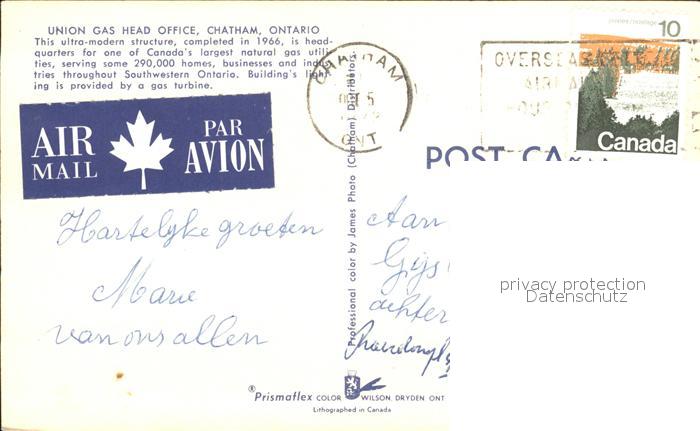 UNION GAS HEAD OFFICE, CHATHAM, ONTARIO
This ultra-modern structure, completed in 1966, is head-
quarters for one of Canada's largest natural gas utili-
ties, serving some 290,000 homes, businesses and indus-
tries throughout Southwestern Ontario. Building's light-
ing is provided by a gas turbine.
CHATHAM
5
ONT
OVERSEAS
AIR
postes/postage 10
Canada
AIR
MAIL
PAR
AVION
POST
Hartelyke groeten
Marie
van ons allen
Professional color by James Photo (Chatham) Distributors.
Aan
Gijs
achter
privacy protection
Datenschutz
®Prismaflex COLOR WILSON, DRYDEN ONT
Lithographed in Canada